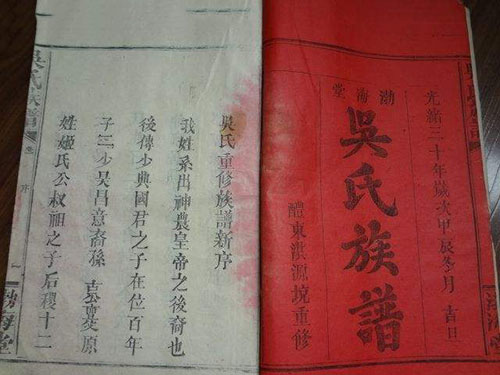 光緒三十年歲次甲辰冬月 吉日
渤海堂
吳氏族譜
醴東洪源境重修
吳氏重修族譜新序
我姓系出神農皇帝之後裔也
後傳少典國君之子在位百年
子二少吴昌意裔孫 原
姓姬氏公叔祖之子后稷十二
吳氏族譜 卷 序 一 渤海堂